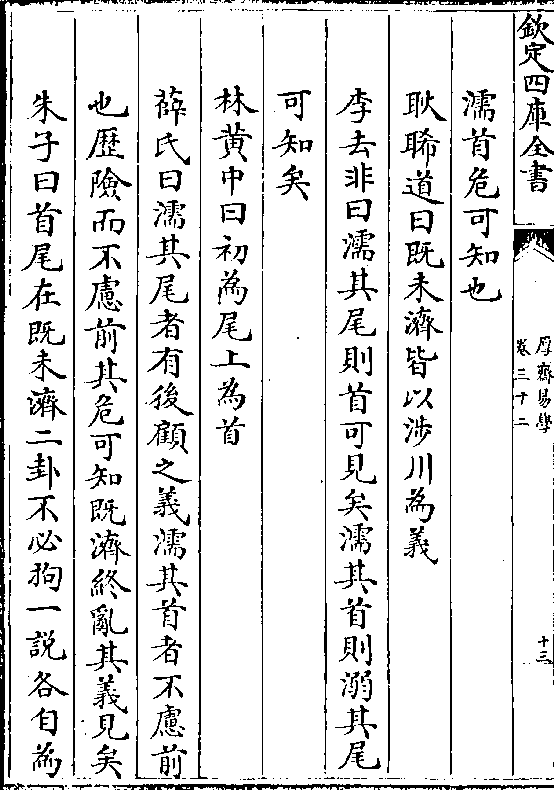 欽定四庫全書
厚齋易學
卷三十二
十三
濡首危可知也
耿睎道曰既未濟皆以涉川為義
李去非曰濡其尾則首可見矣濡其首則溺其尾
可知矣
林黃中曰初為尾上為首
薛氏曰濡其尾者有後顧之義濡其首者不慮前
也歷險而不慮前其危可知既濟終亂其義見矣
朱子曰首尾在既未濟二卦不必拘一説各自為